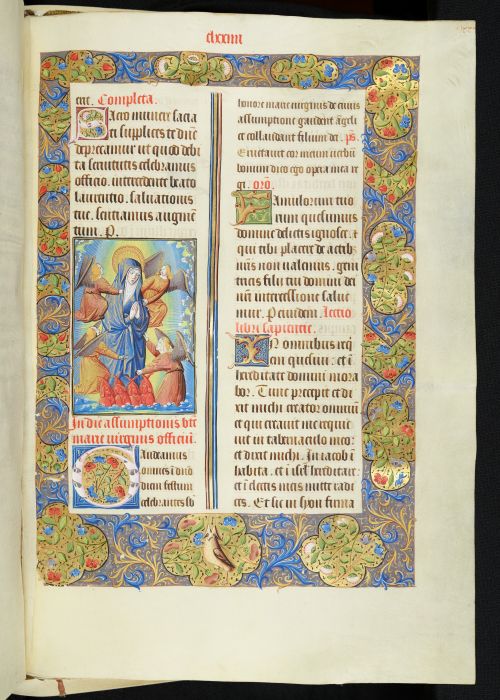 clxxiiii
ere. Completa.
Sacro munere sacia
ti supplices te dn̄e
deprecamur ut quod debi
ta servitutis celebramus
officio. intercedente beato
laurentio. salvationis
tue. sentiamus augmē
tum. P.
In die assumptionis bte
marie virginis officiū.
Gaudeamus
omnes ī dn̄o
diem festum
celebrantes so
honore marie virginis de cuius
assumptione gaudent āgeli
et collaudant filium dei. ps.
Eructavit cor meum verbū
bonum dico ego opera mea re
gi. orō.
Famulorum tuo
rum quesumus
domine delictis ignosce. ut
qui tibi placere de actib
nr̄is non valemus. geni
tricis filii tui domini dei
nr̄i intercessione salue
mur. Per eundem. Lectio
libri sapientie.
In omnibus req̄
em quesivi: et ī
hereditate domini mora
bor. Tunc precepit et di
xit michi creator omniū:
et qui creavit me requie
vit in tabernaculo meo:
et dixit michi. In iacob ī
habita. et ī isrl̄ hereditare:
et ī electis meis mitte radi
ces. Et sic in syon firma